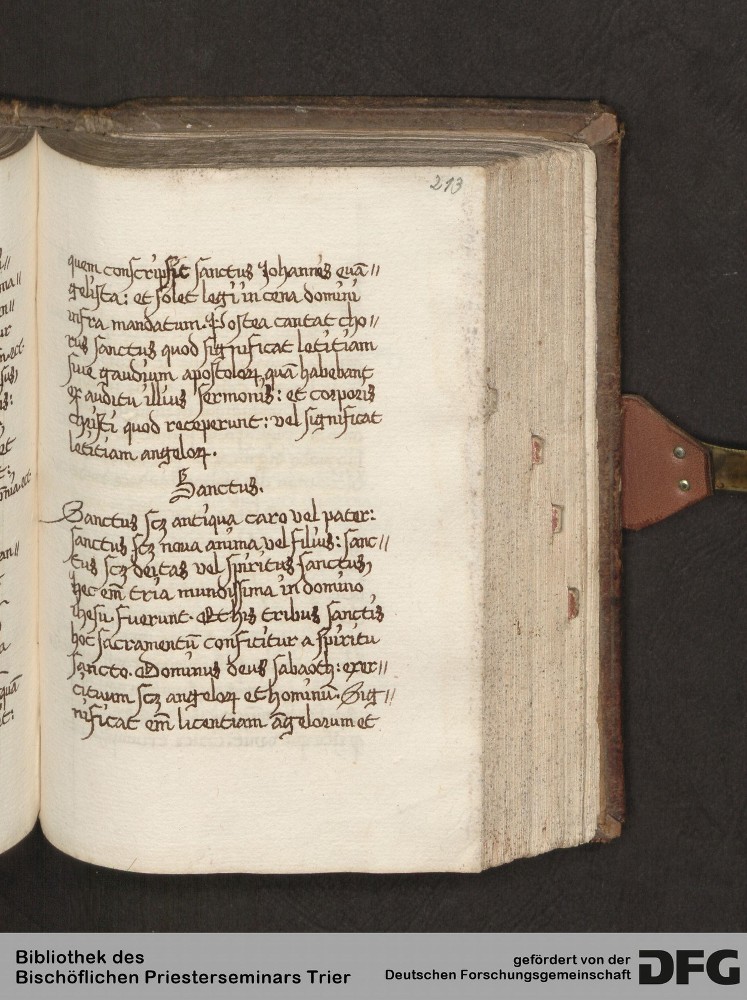 213
quem conscripsit sanctus Johannes euā//
gelista: et solet legi in cena domini
infra mandatum. Postea cantat cho//
rus sanctus quod significat letitiam
siue gaudium apostoloꝝ, quā habebant
ex auditu illius sermonis: et corporis
christi quod receperunt: vel significat
letitiam angeloꝝ.
Sanctus.
Sanctus scꝫ antiqua caro vel pater:
sanctus scꝫ noua anima, vel filius: sanc//
tus scꝫ deitas vel spiritus sanctus,
hec em̄ tria mundissima in domino
ihesu fuerunt. Et his tribus sanctis
hoc sacramentū conficitur a spiritu
sancto. Dominus deus sabaoth: exer//
cituum scꝫ angeloꝝ et hominū. Sig//
nificat em̄ licentiam āgelorum et
Bibliothek des
Bischöflichen Priesterseminars Trier
gefördert von der
Deutschen Forschungsgemeinschaft
DFG